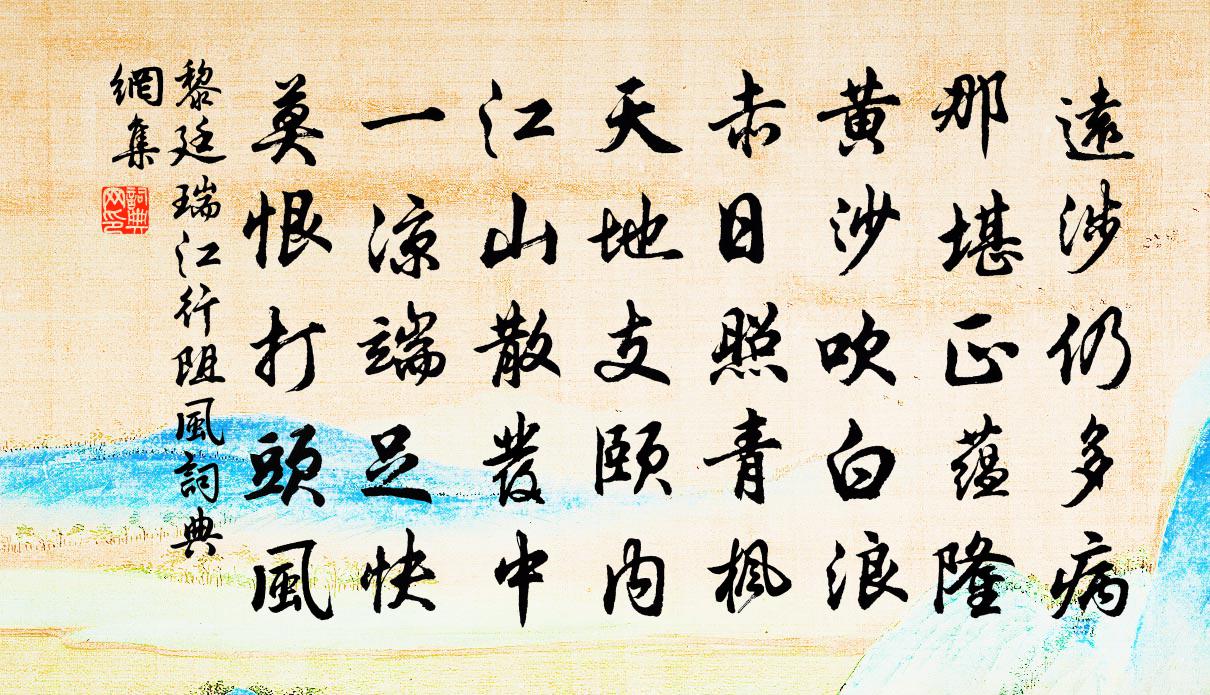 遠涉仍多病
那堪正蘊隆
黃沙吹白浪
赤日照青楓
天地支頤內
江山散髮中
一涼端足快
莫恨打頭風
黎廷瑞江行阻風詞典
網集
詞典
网印